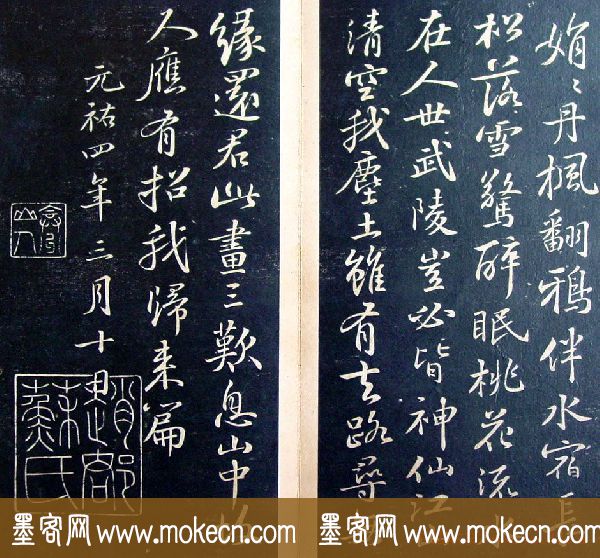 娟〻丹楓翻鴉伴水宿長
松落雪驚醉眠桃花流水
在人世武陵豈必皆神仙江山
清空我塵土雖有去路尋
緣還君此畫三歎息山中
人應有招我歸來篇
元祐四年三月十日
趙郡
蘇氏
墨客网 www.mokecn.com
墨客网 www.mokecn.com